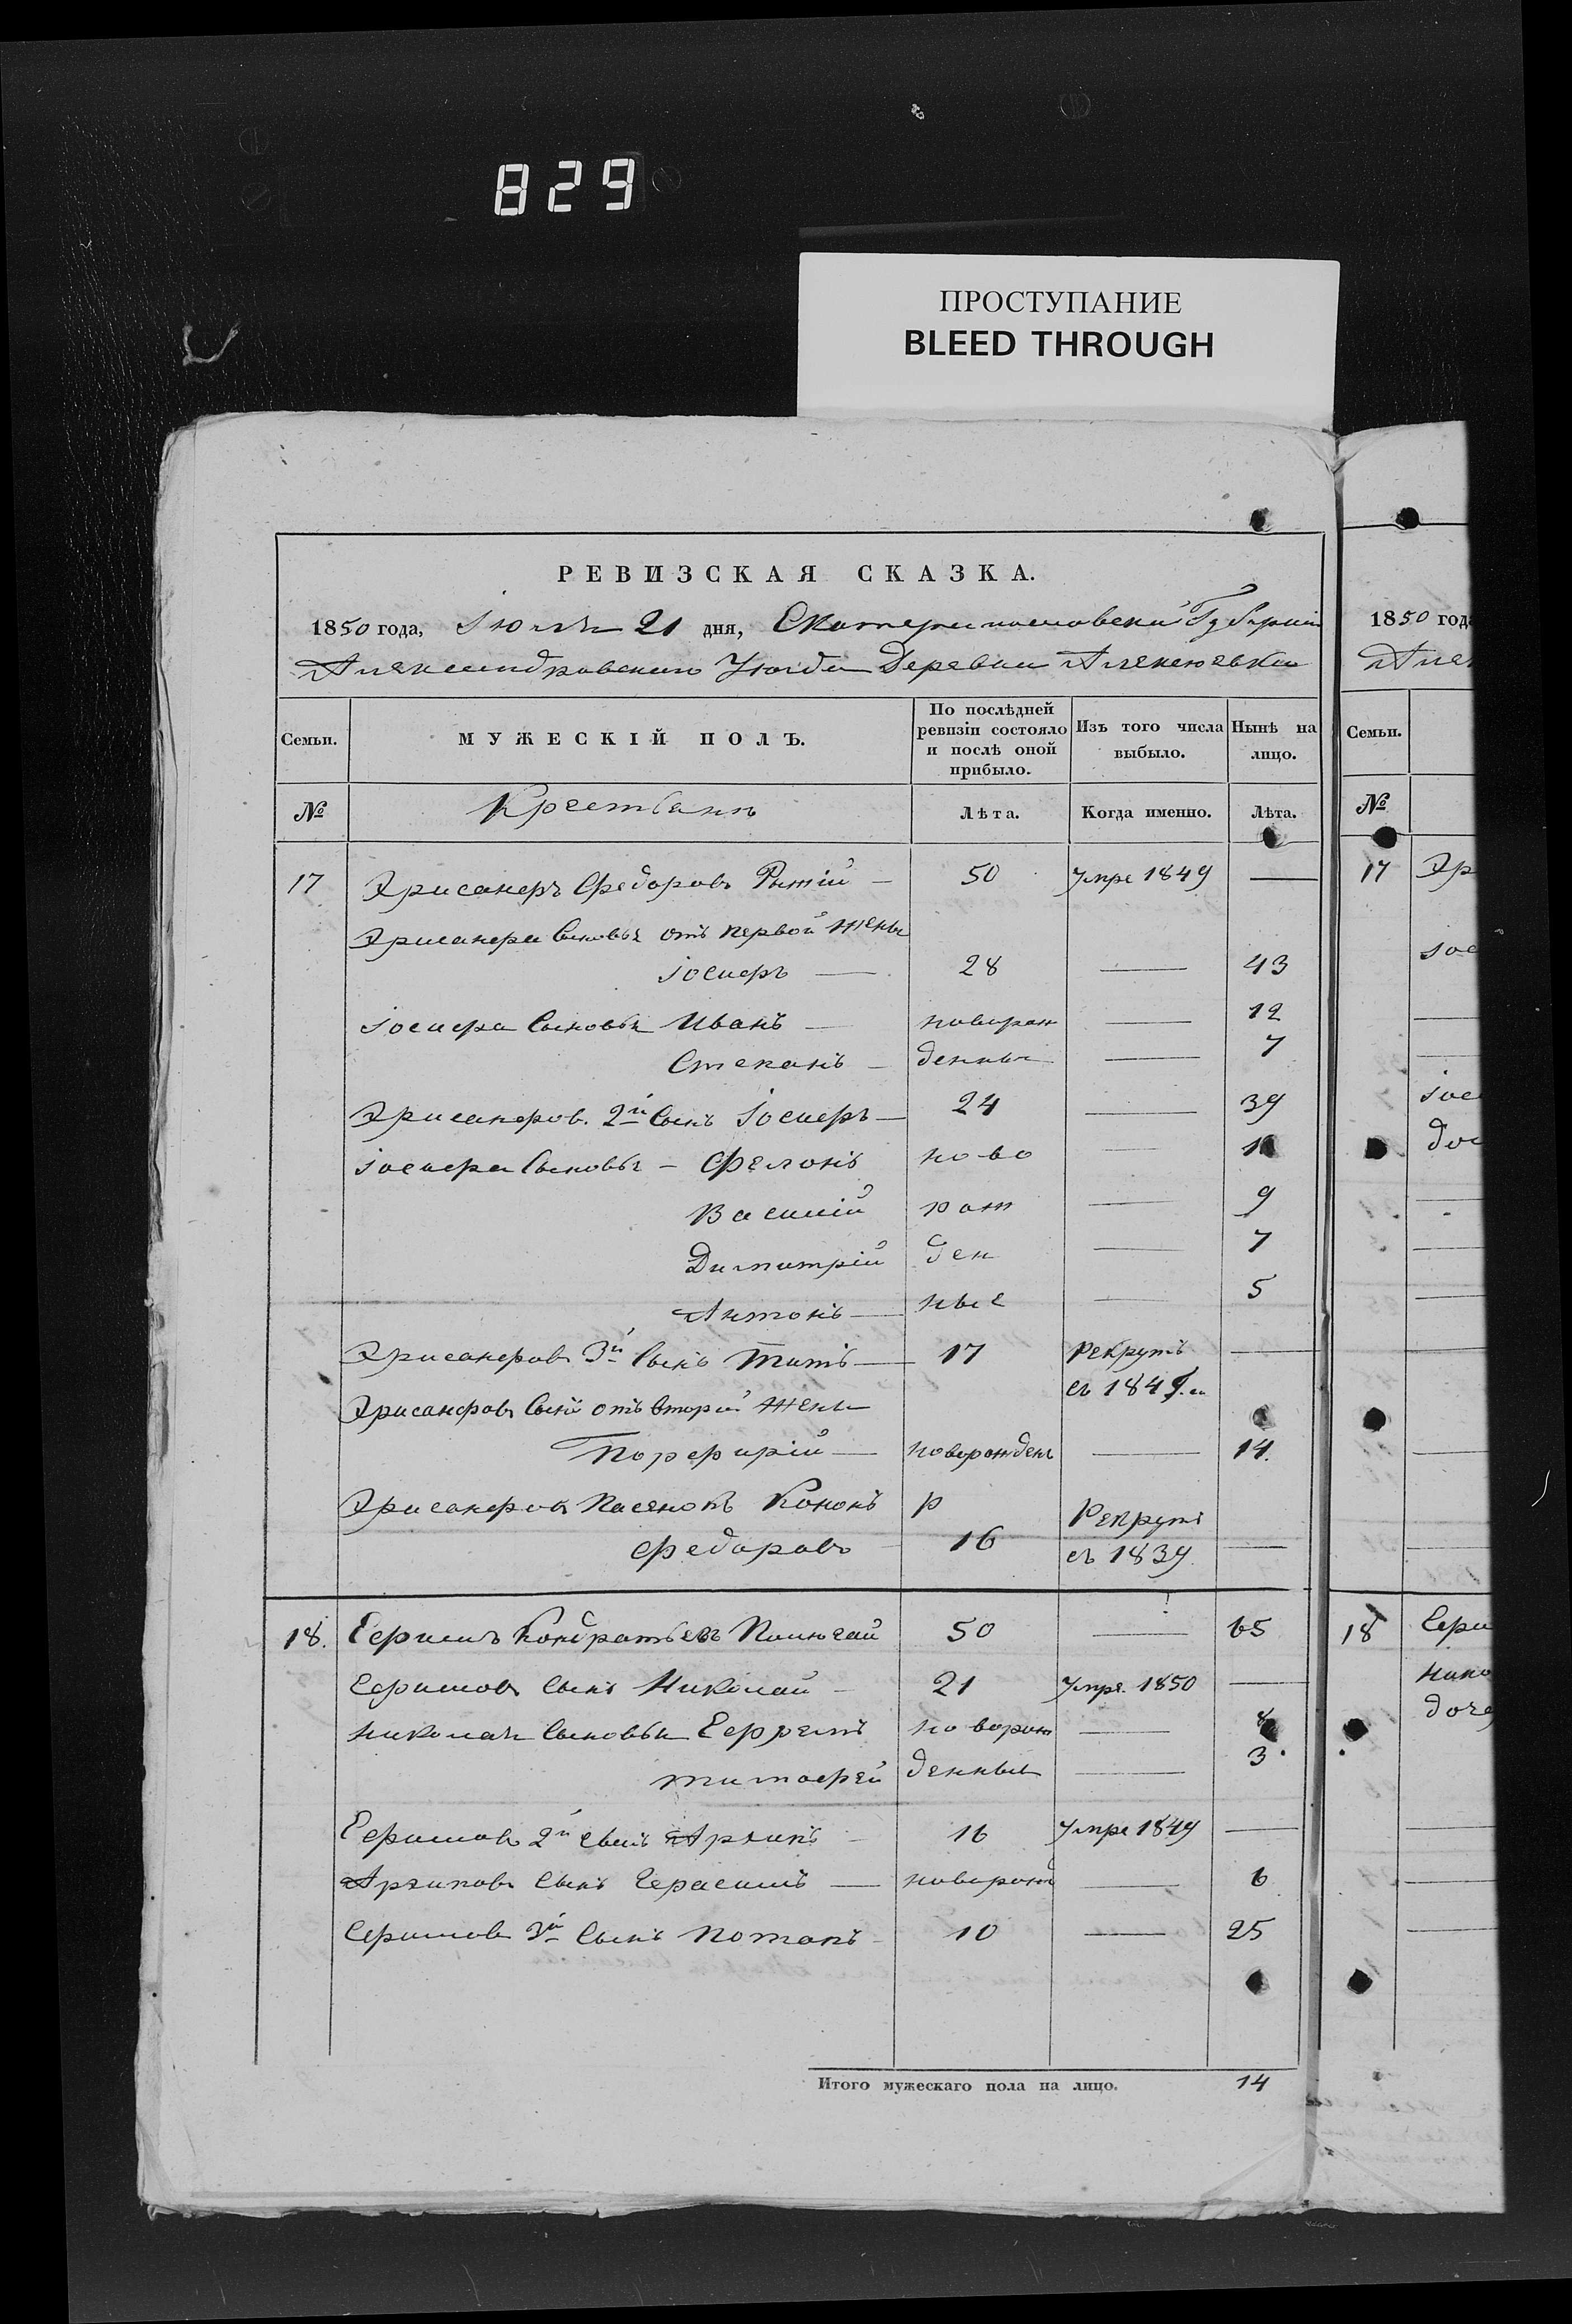 829
ПРОСТУПАНИЕ
BLEED THROUGH
РЕВИЗСКАЯ СКАЗКА.
1850 года, Іюля 21 дня, Екатеринославской Губерніи
Александровскаго Уезда Деревни Алексеевки
Семьи.
МУЖЕСКІЙ ПОЛЪ.
По послѣдней ревизіи состояло и послѣ оной прибыло.
Изъ того числа выбыло.
Нынѣ на лицо.
№ Крестьянъ Лѣта. Когда именно. Лѣта.
17 Хрисанфъ Федоровъ 50 Умре 1849
Хрисанфа Сыновья отъ первой жены
Іосифъ 28 43
Іосифа Сыновья Иванъ новорож 12
Степанъ денны 7
Хрисанфов. 2й Сынъ Іосифъ 24 39
Іосифа Сыновья Филонъ ново
Василій рож 9
Димитрій ден 7
Антонъ ные 5
Хрисанфовъ 3й Сынъ Титъ 17 Рекрутъ
съ 184
Хрисанфовъ Сынъ отъ второй жены
Порфирій новорожденъ 14.
Хрисанфовъ Пасынокъ Кононъ р Рекрутъ
Федоровъ 16 съ 1839
18. Ефимъ Кондратьевъ 50 65
Ефимовъ Сынъ Николай 21 Умре. 1850
Николая Сыновья Ефремъ новорож 8
Тимофей денныи 3
Ефимовъ 2й Сынъ Архипъ 16 Умре 1849
Архиповъ Сынъ Герасимъ новорож 6
Ефимовъ 3й Сынъ Потапъ 10 25
Итого мужескаго пола на лицо. 14
1850 год
Але
Семьи.
№
17 Хр
Іос
Іос
доч
18 Ефи
Нико
доче